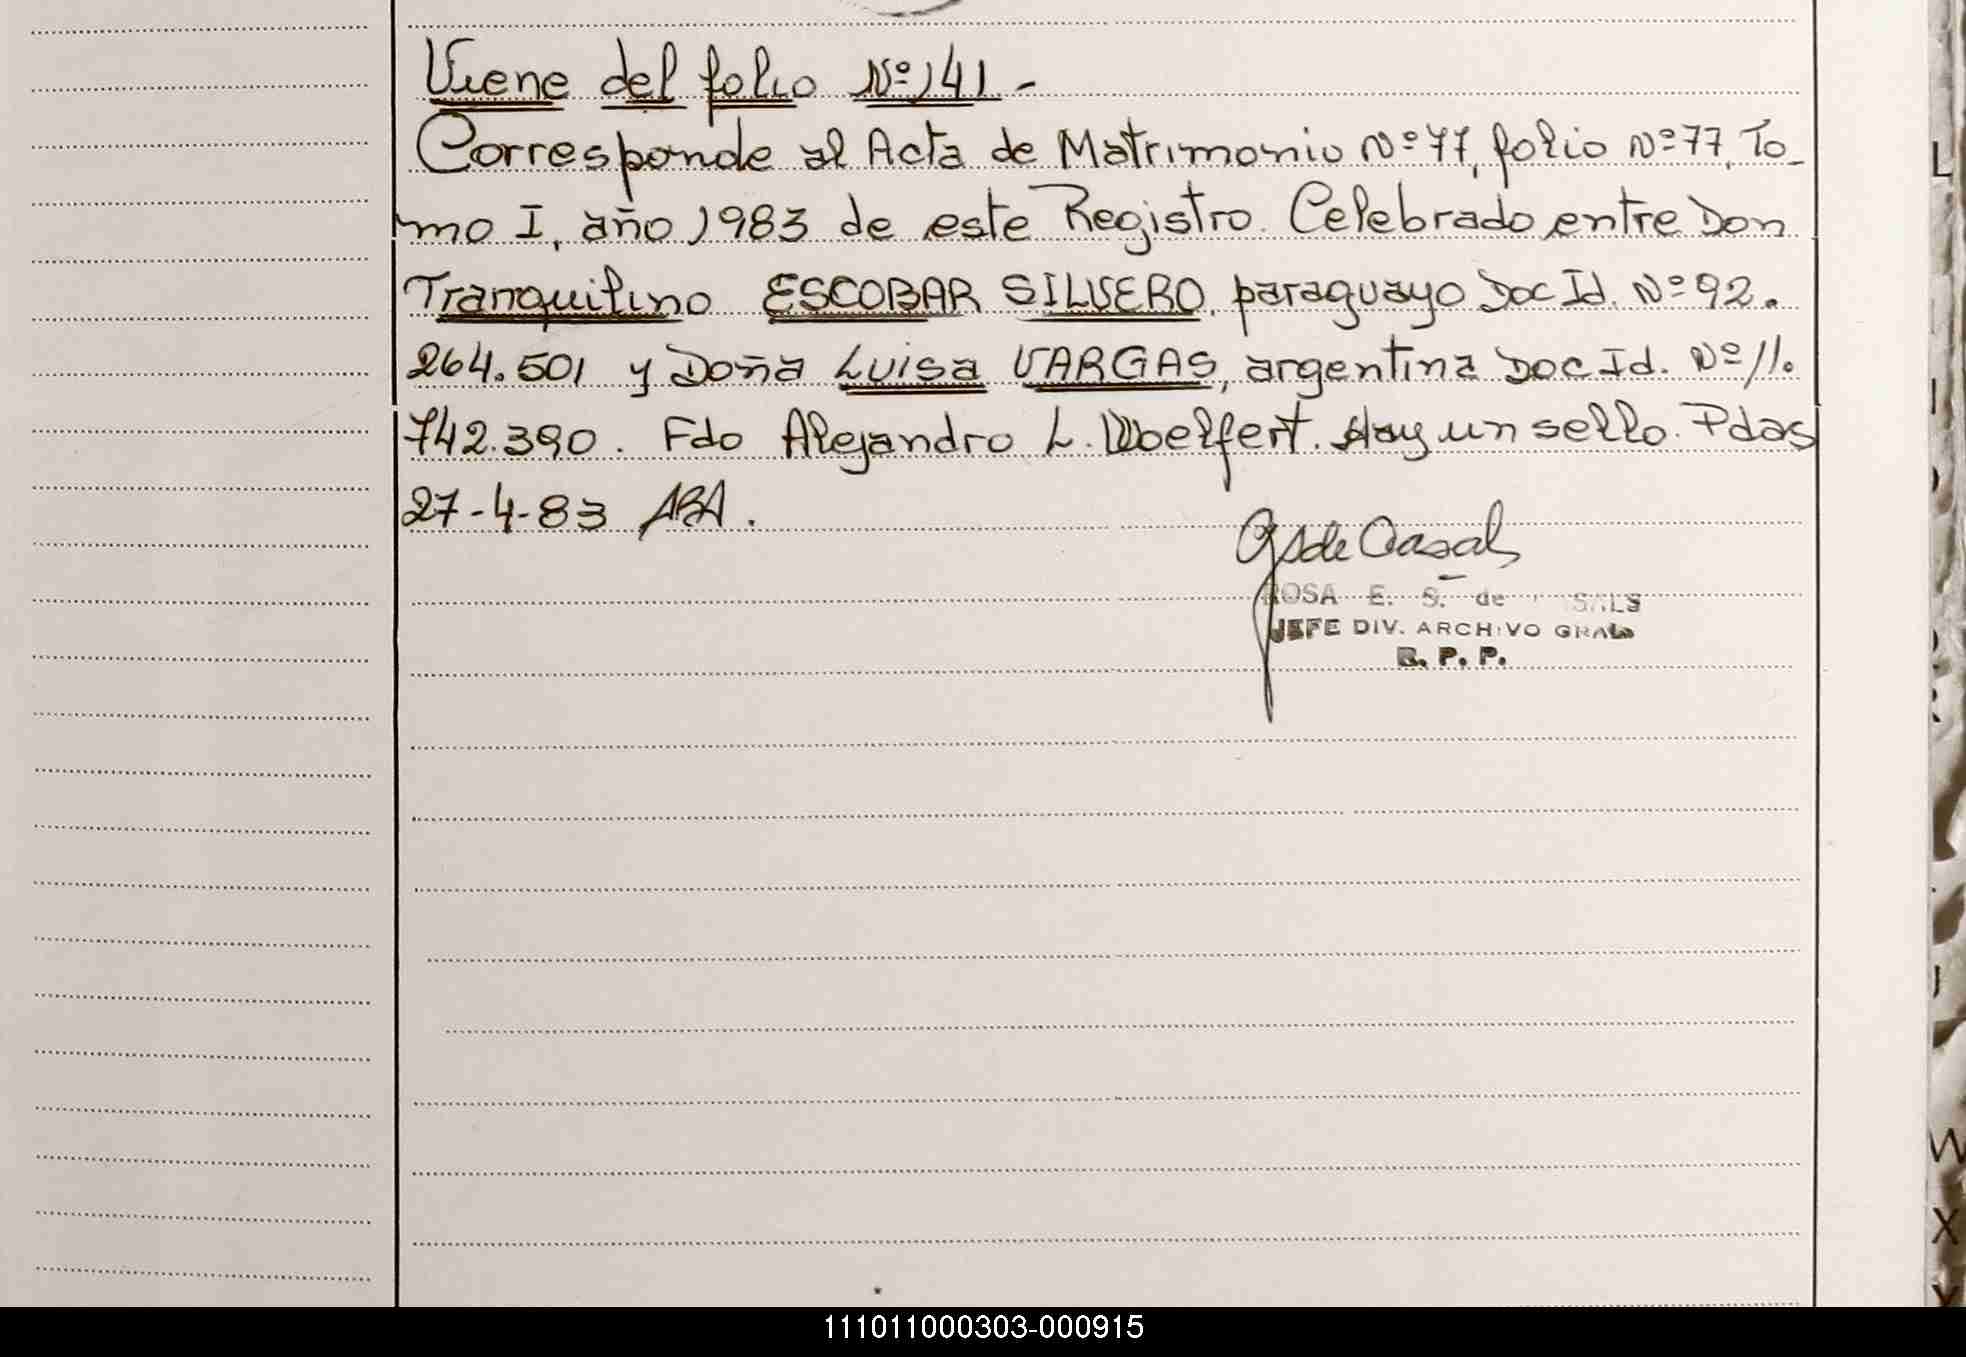 Viene del folio Nº 141 -
Corresponde al Acta de Matrimonio Nº 77, folio Nº 77, To-
mo I, año 1983 de este Registro. Celebrado entre Don
Tranquilino ESCOBAR SILVERO, paraguayo Doc Id. Nº 92.
264.501 y Doña Luisa VARGAS, argentina Doc Id. Nº 11.
742.390. Fdo Alejandro L. Woelfert. Hay un sello. Pdas
27-4-83 ABA.
ROSA E. S. de
JEFE DIV. ARCHIVO GRAL
R. P. P.
L
W
X
Y
111011000303-000915